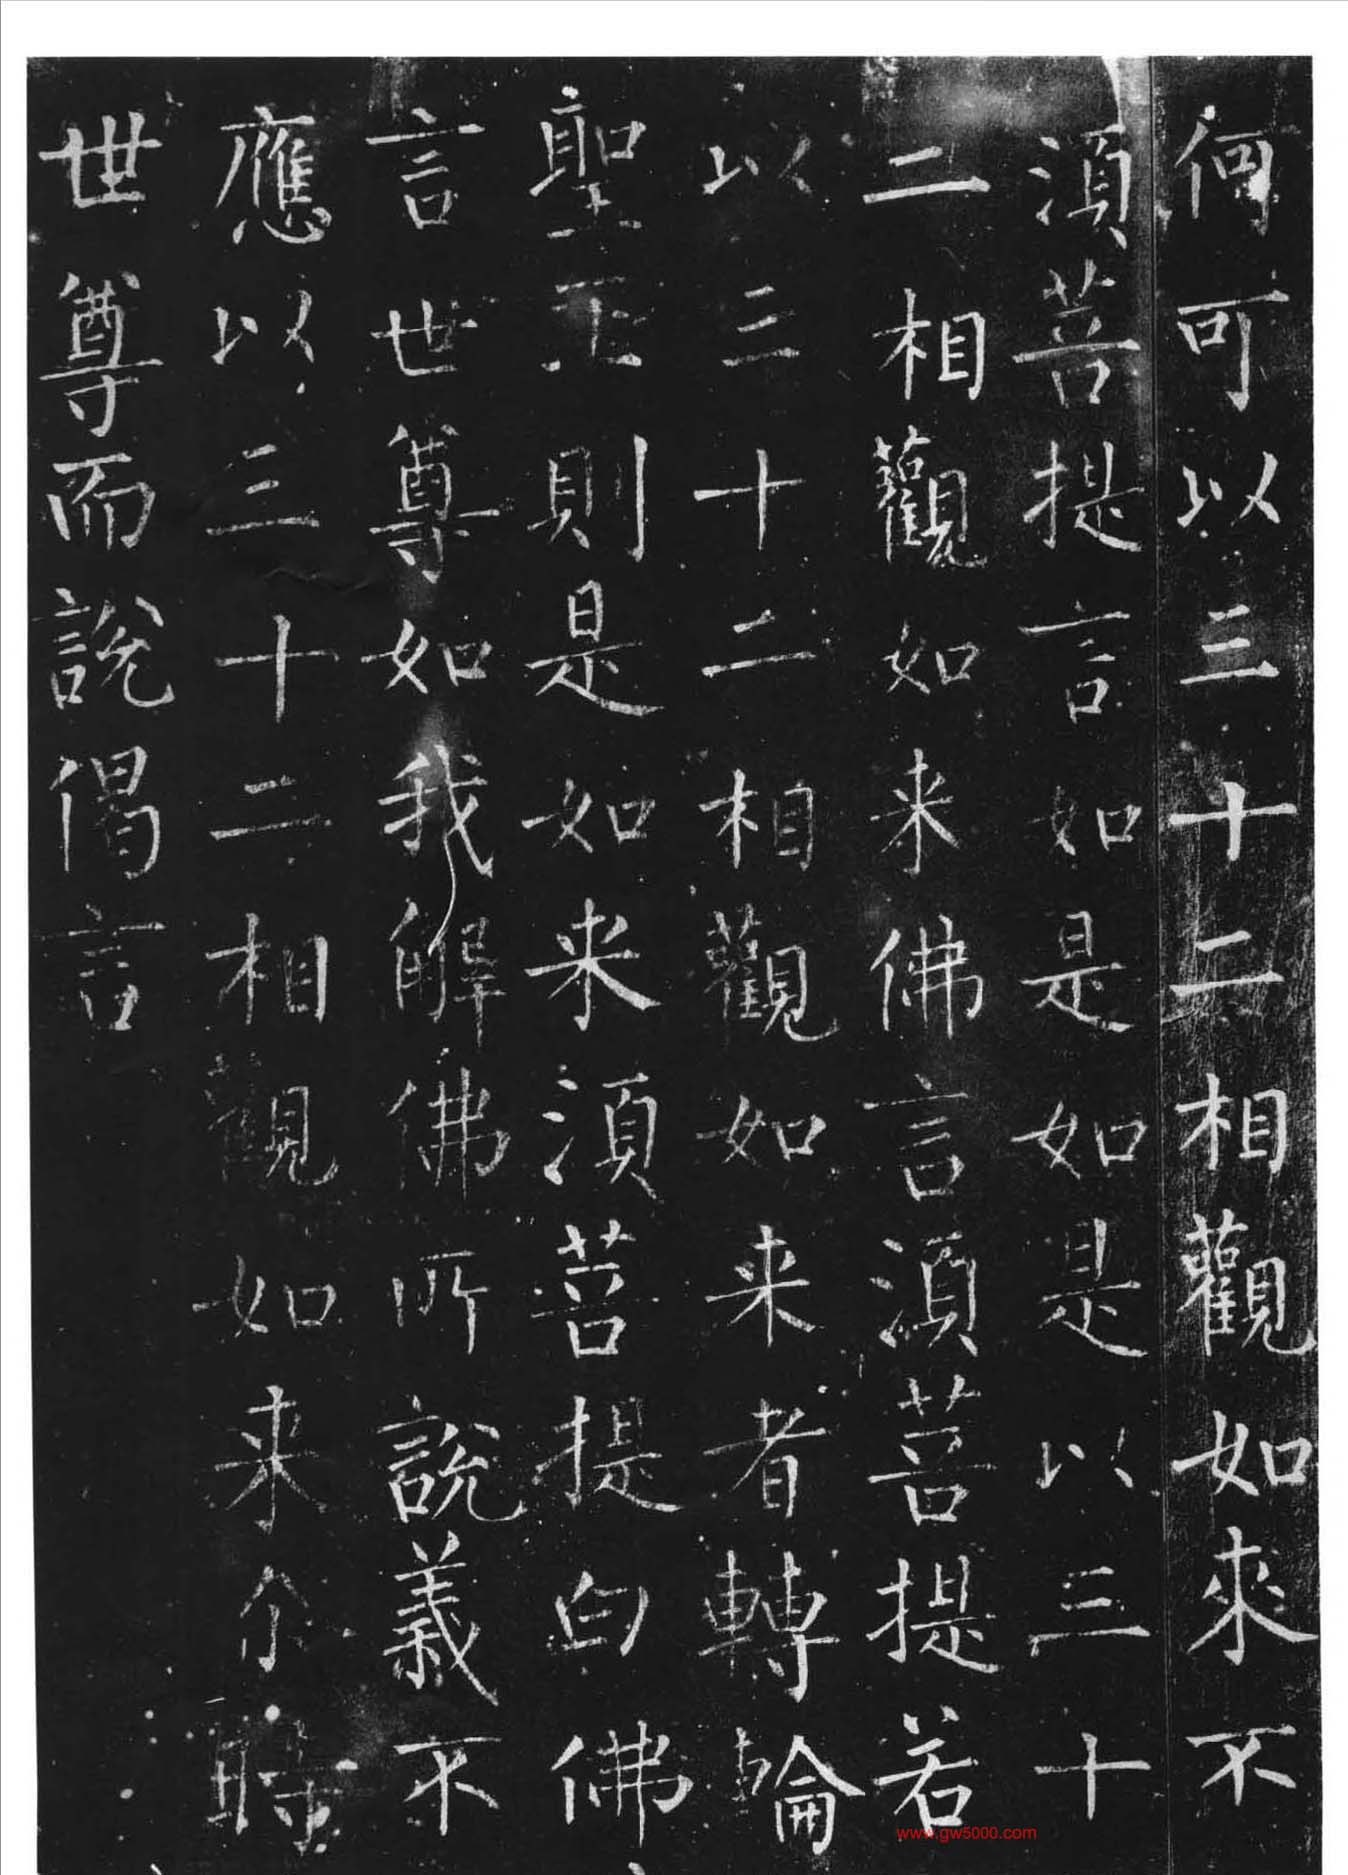 何可以三十二相觀如來不
湏菩提言如是如是以三十
二相觀如来佛言湏菩提若
以三十二相觀如来者轉輪
聖王則是如来湏菩提白佛
言世尊如我解佛所説義不
應以三十二相觀如来尒時
世尊而説偈言
www.gw5000.com